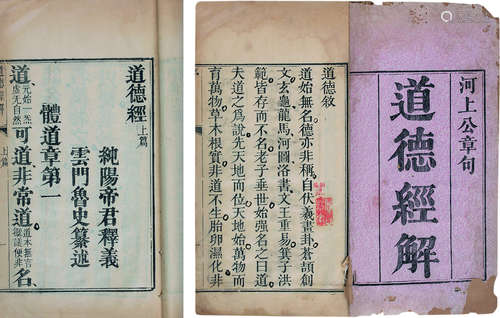 道德經上篇
純陽帝君釋義
雲門魯史纂述
體道章第一
道元始一炁虛无自然可道非常道道本無言擬議便非名
道德經解
上篇
道德敘
道始無名德亦非稱自伏羲畫卦蒼頡創
文玄龜龍馬河圖洛書文王重易箕子洪
範皆存而不名老子垂世始强名之曰道
夫道之為說先天地而位天地始萬物而
育萬物草木根實非道不生胎卵濕化非
河上公章句
道德經解